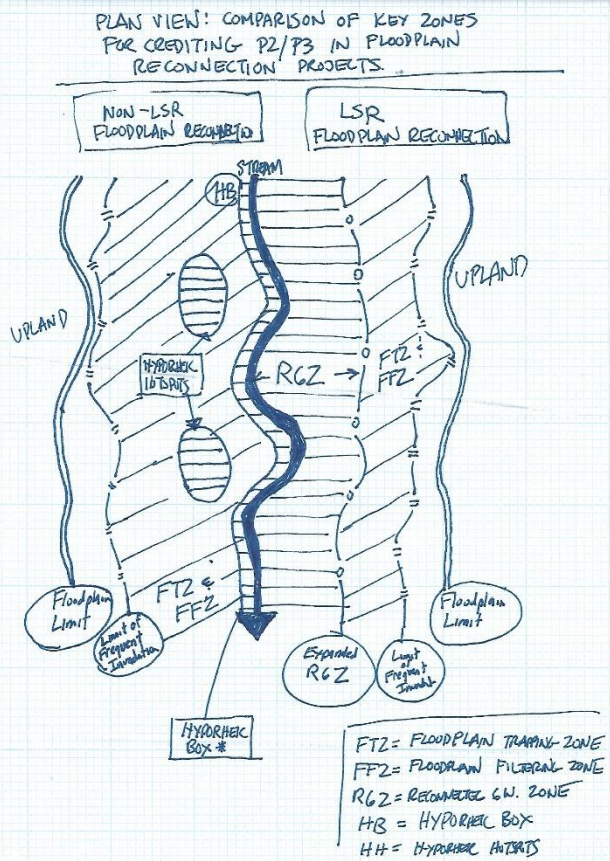 PLAN VIEW: COMPARISON OF KEY ZONES
FOR CREDITING P2/P3 IN FLOODPLAIN
RECONNECTION PROJECTS.
NON-LSR
FLOODPLAIN RECONNECTIO
LSR
FLOODPLAIN RECONNECTION
STREAM
HB
UPLAND
UPLAND
HYPORHEIC
HOTSPOTS
RGZ
FTZ &
FFZ
FTZ &
FFZ
Floodplain
Limit
Limit of
Frequent
Inundation
Expanded
RGZ
Limit
of
Frequent
Inundat
Floodplain
Limit
HYPORHEIC
BOX *
FTZ = FLOODPLAIN TRAPPING ZONE
FFZ = FLOODPLAIN FILTERING ZONE
RGZ = RECONNECTED GW. ZONE
HB = HYPORHEIC BOX
HH = HYPORHEIC HOTSPOTS